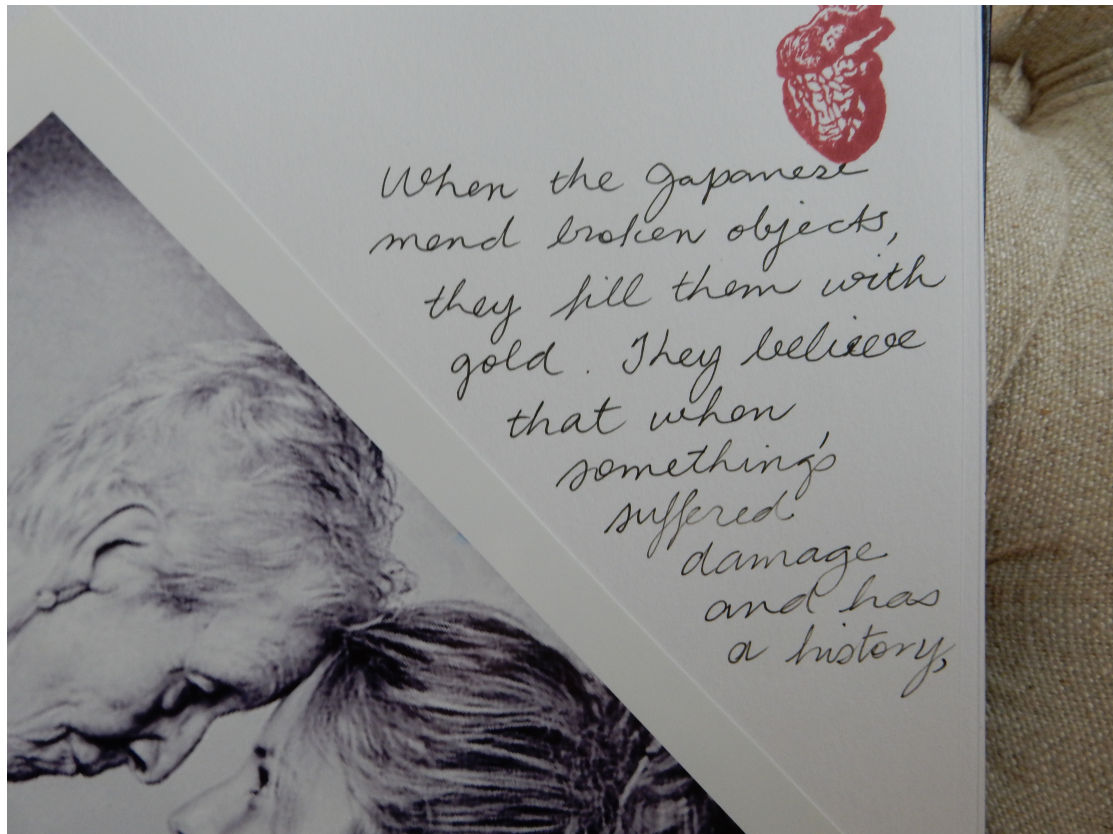 When the Japanese
mend broken objects,
they fill them with
gold. They believe
that when
something's
suffered
damage
and has
a history,